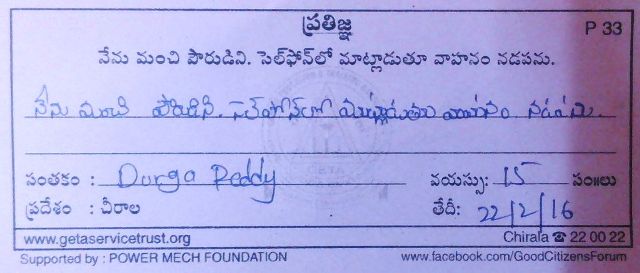 ప్రతిజ్ఞ P 33
నేను మంచి పౌరుడిని. సెల్‌ఫోన్‌లో మాట్లాడుతూ వాహనం నడపను.
నేను మంచి పౌరుడిని. సెల్‌ఫోన్‌లో మాట్లాడుతూ వాహనం నడపను.
సంతకం : Durga Reddy వయస్సు: 15 సం॥లు
ప్రదేశం : చీరాల తేదీ: 22/2/16
www.getaservicetrust.org Chirala ☎ 22 00 22
Supported by : POWER MECH FOUNDATION www.facebook.com/GoodCitizensForum